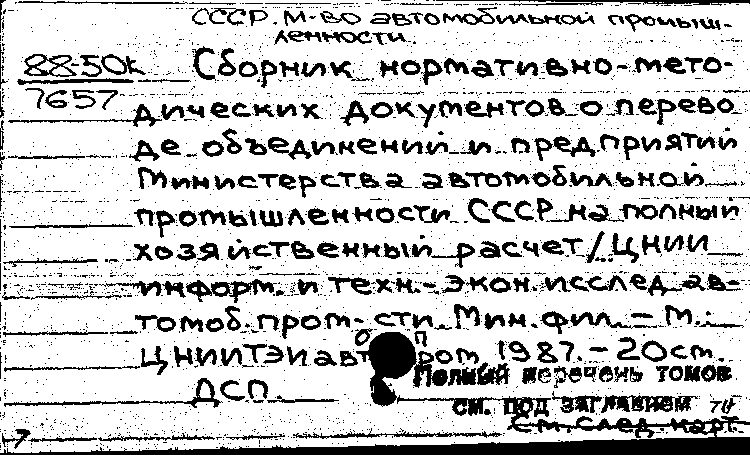 СССР. М-во автомобильной промыш-
ленности.
88-50к
7657
Сборник нормативно-мето-
дических документов о перево
де объединений и предприятий
Министерства автомобильной
промышленности СССР на полный
хозяйственный расчет/ЦНИИ
информ. и техн.-экон. исслед. ав-
томоб. пром-сти. Мин. фил. - М.:
ЦНИИТЭИавтопром, 1987. - 20см.
ДСП.
Полный перечень томов
см. под заглавием
См. след. карт.
7